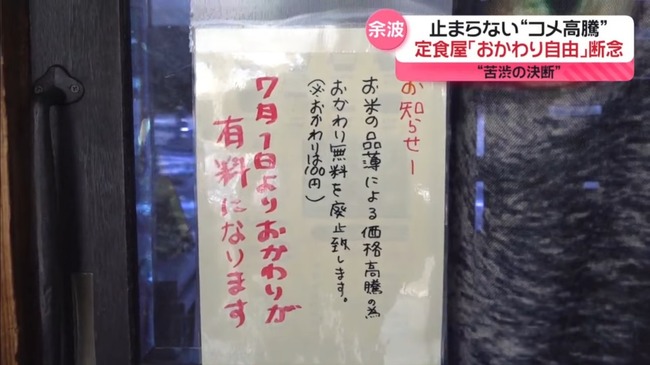 余波
止まらない“コメ高騰”
定食屋「おかわり自由」断念
“苦渋の決断”
お知らせー
お米の品薄による価格高騰の為
おかわり無料を廃止致します。
(※おかわりは100円)
7月1日よりおかわりが
有料になります